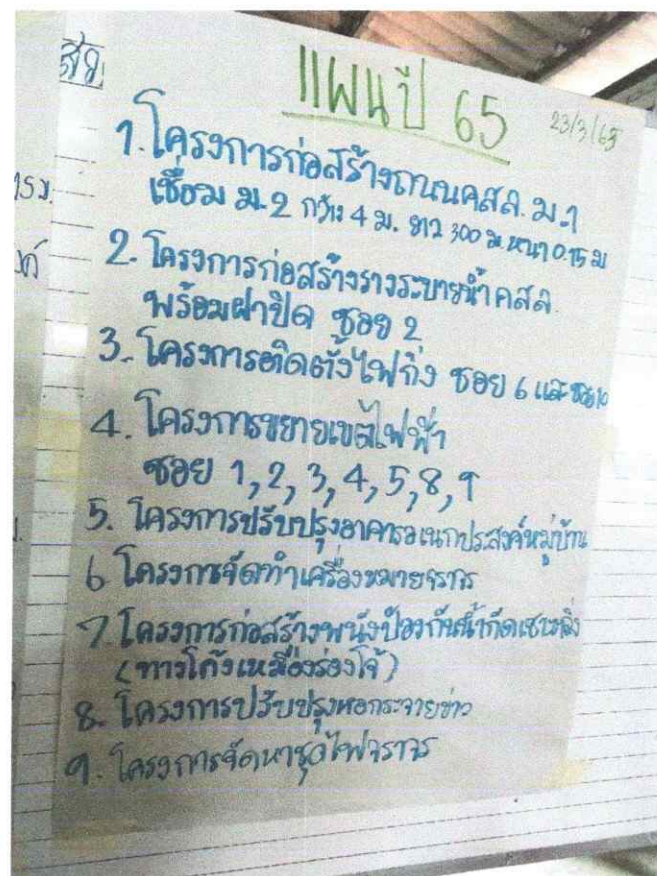 แผนปี 65
23/3/65
1. โครงการก่อสร้างถนนคสล. ม.1
เชื่อม ม.2 กว้าง 4 ม. ยาว 300 ม. หนา 0.15 ม
2. โครงการก่อสร้างรางระบายน้ำ คสล.
พร้อมฝาปิด ซอย 2
3. โครงการติดตั้งไฟกิ่ง ซอย 6 และ ซอย 10
4. โครงการขยายเขตไฟฟ้า
ซอย 1, 2, 3, 4, 5, 8, 9
5. โครงการปรับปรุงอาคารอเนกประสงค์หมู่บ้าน
6 โครงการจัดทำเครื่องหมายจราจร
7. โครงการก่อสร้างพนังป้องกันน้ำกัดเซาะตลิ่ง
(ทางโค้งเหมืองร่องโจ้)
8. โครงการปรับปรุงหอกระจายข่าว
9. โครงการจัดหาชุดไฟจราจร